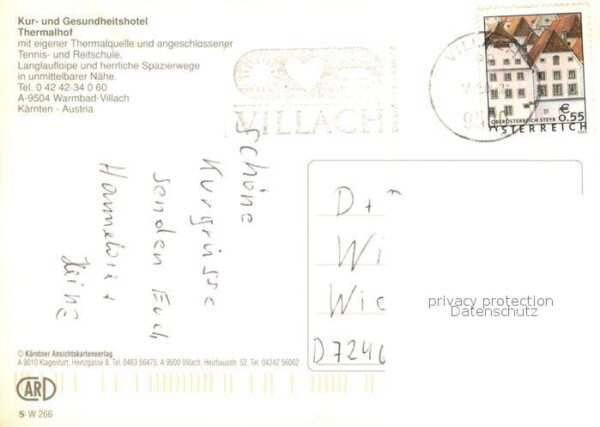 Kur- und Gesundheitshotel
Thermalhof
mit eigener Thermalquelle und angeschlossener
Tennis- und Reitschule.
Langlaufloipe und herrliche Spazierwege
in unmittelbarer Nähe.
Tel. 0 42 42-34 0 60
A-9504 Warmbad-Villach
Kärnten - Austria
VILLACH
€
0.55
OBERÖSTERREICH STEYR
ÖSTERREICH
Schöne
Kurgrüsse
senden Euch
Hannelore +
Heinz
D +
Wi
Wie
D 7246
privacy protection
Datenschutz
© Kärntner Ansichtskartenverlag
A 9010 Klagenfurt, Heinzgasse 8, Tel. 0463 56475, A 9500 Villach, Heizhausstr. 52, Tel. 04242 56062
CARD
S W 266